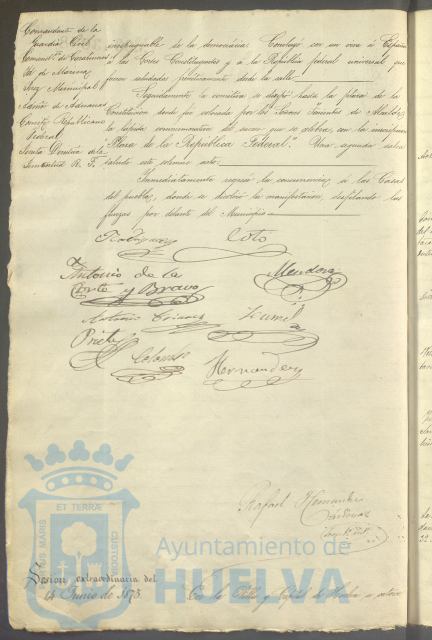 Comandante de la
Guardia Civil
Comand.te de Carabineros
Id. de Marina
Juez Municipal
Admor. de Aduanas
Comité Republicano
Federal
Junta Directiva de la
Juventud R. F.
inexpugnable de la democracia. Concluyó con un viva á España
á las Cortes Constituyentes y á la República federal universal, que
fueron saludados desde la calle.
Seguidamente la comitiva se dirijió hasta la plaza de la
Constitucion donde fue colocada por los Señores Tenientes de Alcalde,
la lápida conmemorativa del suceso que se celebra, con la inscripcion
"Plaza de la República Federal". Una segunda salva
saludó este solemne acto.
Inmediatamente regresó la concurrencia á las Casas
del pueblo, donde se disolvió la manifestacion, desfilando las
fuerzas por delante del Municipio.
Coto
Antonio de la
Corte y Bravo
Mendoza
Antonio
Prieto
Hernandez
Rafael Hernandez
ET TERRÆ
PORTUS MARIS
CUSTODIA
Ayuntamiento de
HUELVA
Sesion extraordinaria del
14 Junio de 1873.
En la Villa y Capital de Huelva á catorce